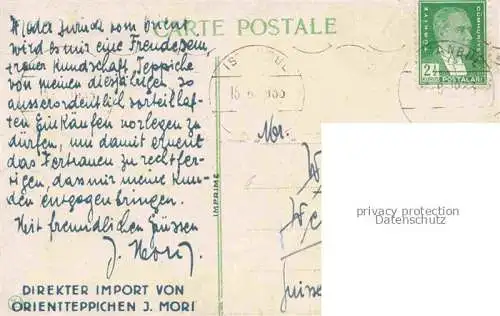 CARTE POSTALE
Wieder zurück vom Orient
wird es mir eine Freude sein,
treuer Kundschaft Teppiche
von meinen diesjährigen so
ausserordentlich vorteilhaf-
ten Einkäufen vorlegen zu
dürfen, um damit erneut
das Vertrauen zu rechtfer-
tigen, das mir meine Kun-
den entgegenbringen.
Mit freundlichen Grüssen
J. Mori.
DIREKTER IMPORT VON
ORIENTTEPPICHEN J. MORI
IMPRIMÉ
TÜRKİYE
CUMHURİYETİ
POSTALARI
privacy protection
DATABASE
Suisse